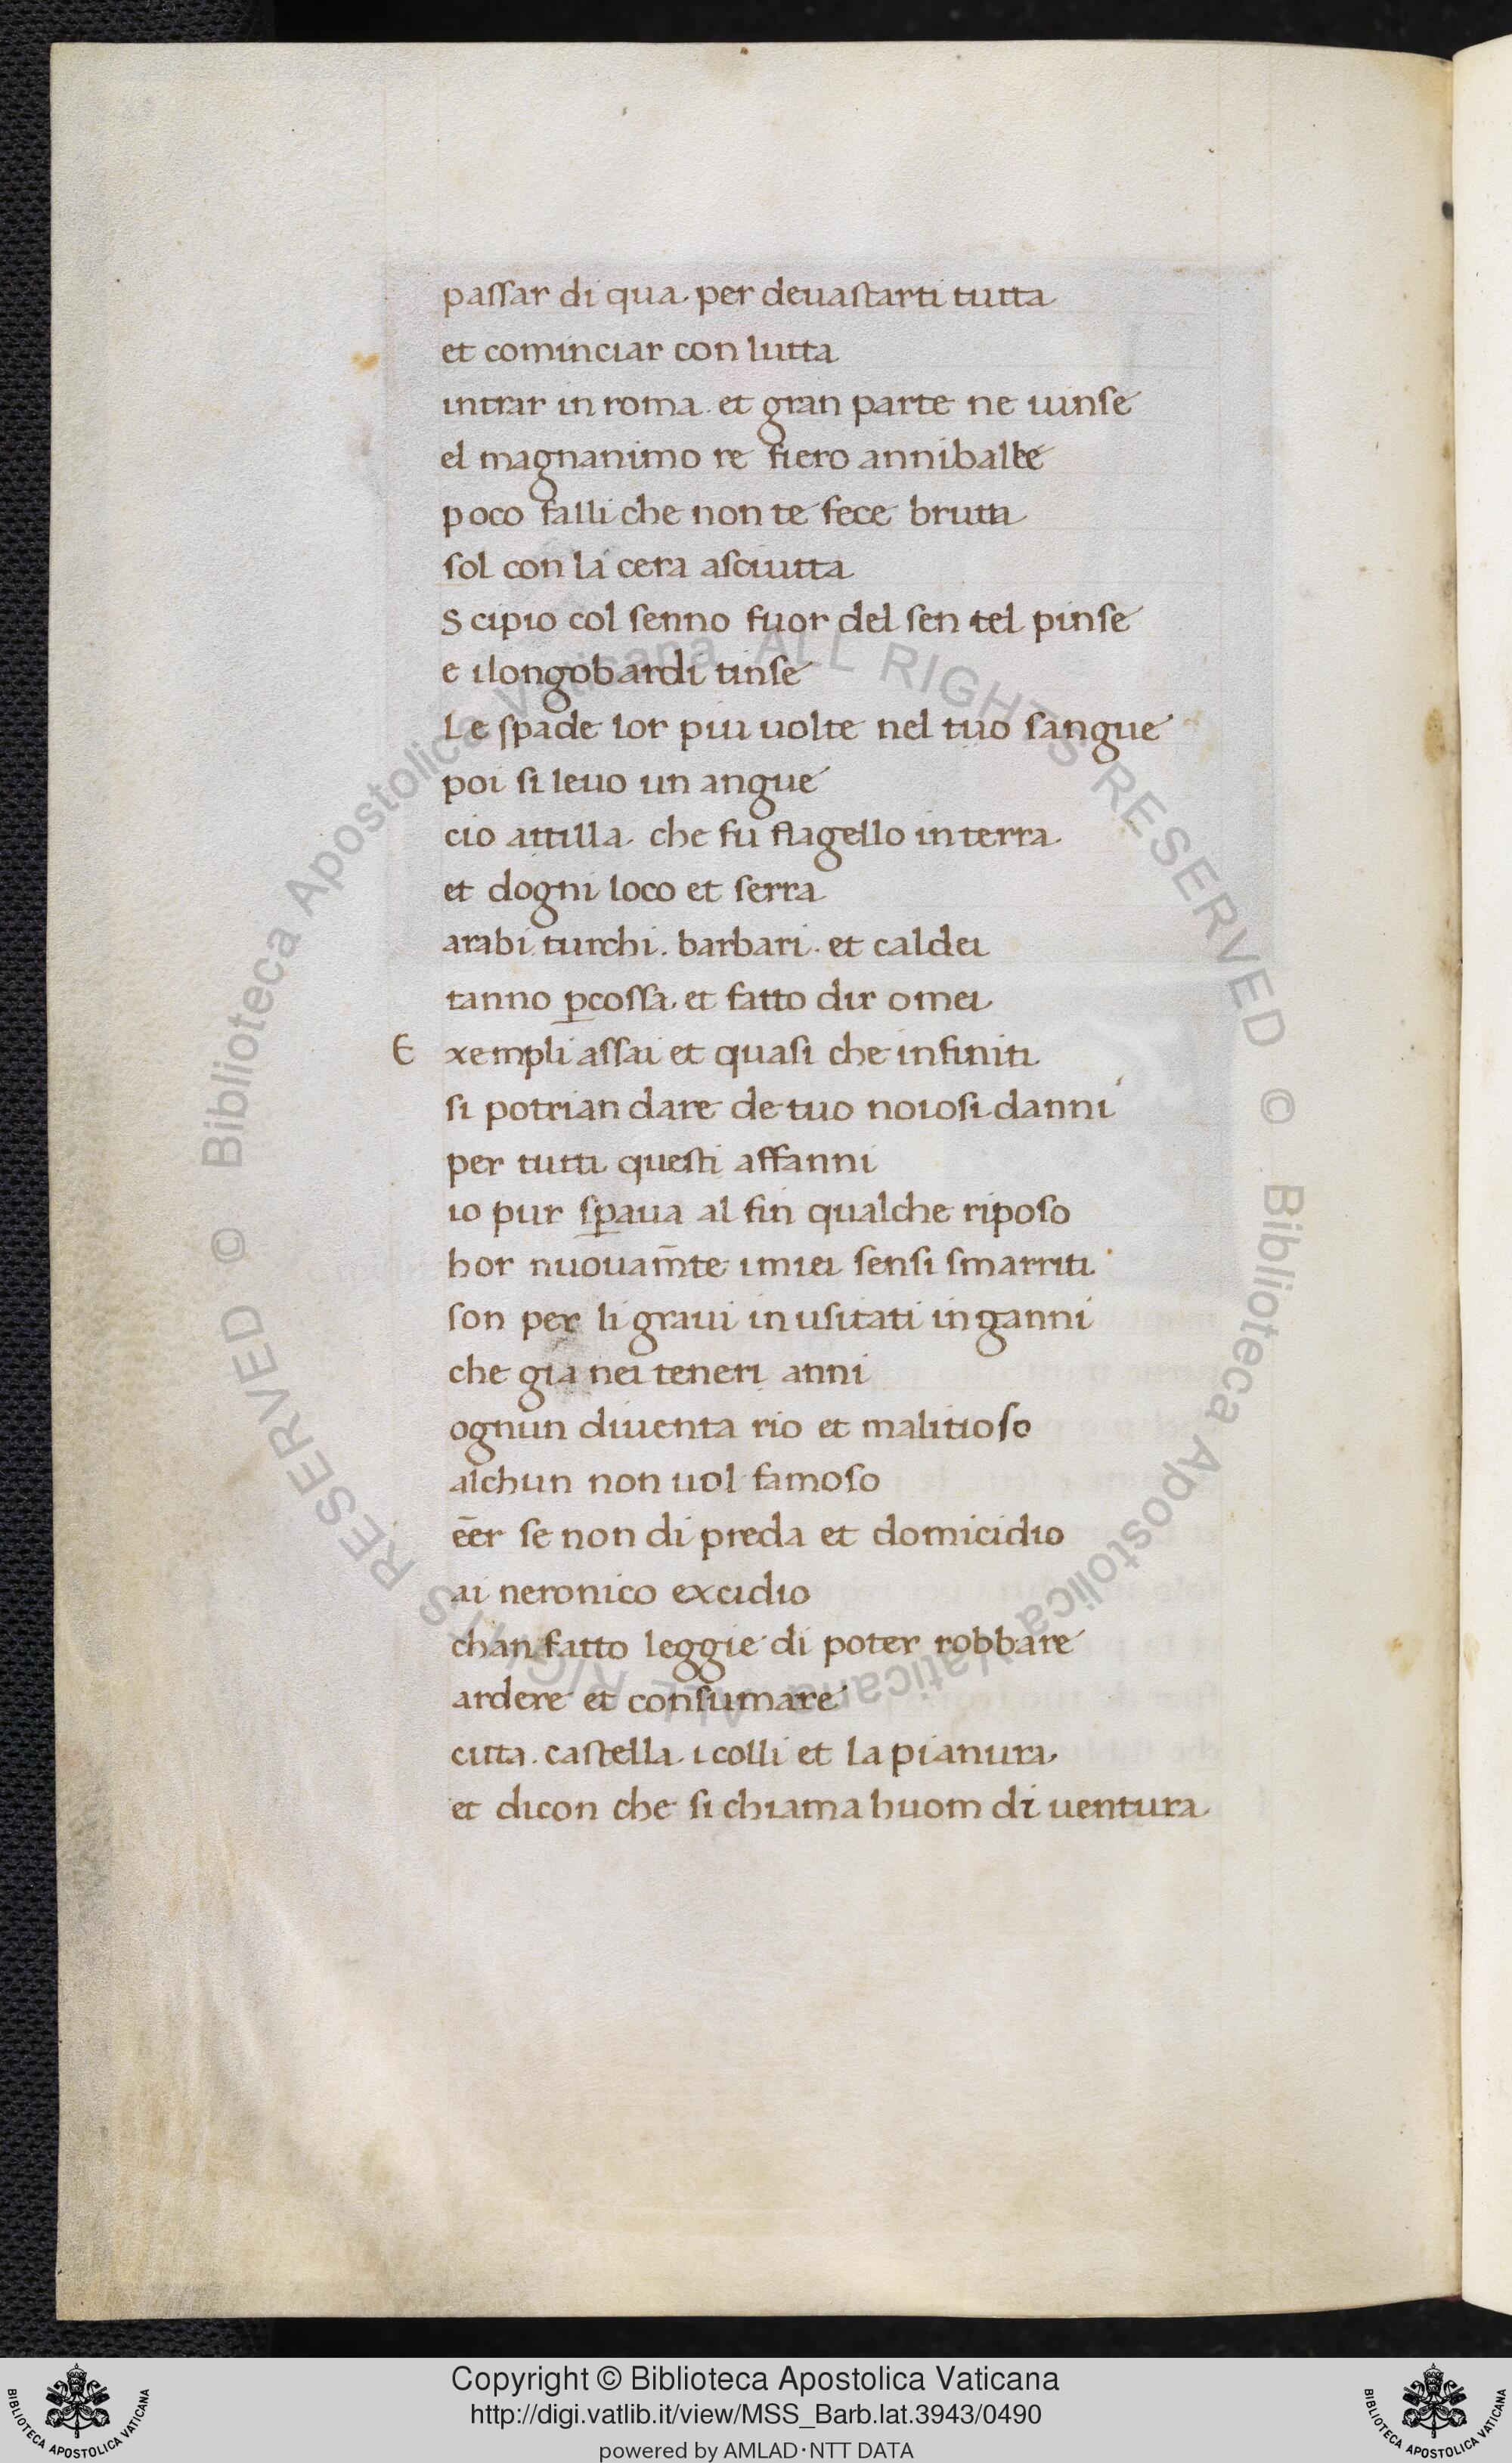 passar di qua. per deuastarti tutta
et cominciar con lutta
intrar in roma. et gran parte ne uinse
el magnanimo re fiero anniballe
poco falli che non te fece brutta
sol con la cera asciutta
Scipio col senno fuor del sen tel pinse
e ilongobardi tinse
Le spade lor piu uolte nel tuo sangue
poi si leuo un angue
cio attilla. che fu flagello in terra.
et dogni loco et serra
arabi. turchi. barbari. et caldei
tanno p̲cossa. et fatto dir omei
Exempli assai et quasi che infiniti
si potrian dare de tuo noiosi danni
per tutti questi affanni
io pur sp̲aua al fin qualche riposo
hor nuouam̄te i miei sensi smarriti.
son per li graui inusitati inganni
che gia nei teneri anni
ognun diuenta rio et malitioso
alchun non uol famoso
ēer se non di preda et domicidio
ai neronico excidio
chan fatto leggie di poter robbare
ardere et consumare
citta. castella. i colli et la pianura.
et dicon che si chiama huom di uentura
© Biblioteca Apostolica Vaticana ALL RIGHTS RESERVED © Biblioteca Apostolica Vaticana ALL RIGHTS RESERVED
Copyright © Biblioteca Apostolica Vaticana
http://digi.vatlib.it/view/MSS_Barb.lat.3943/0490
powered by AMLAD·NTT DATA
BIBLIOTECA APOSTOLICA VATICANA
BIBLIOTECA APOSTOLICA VATICANA